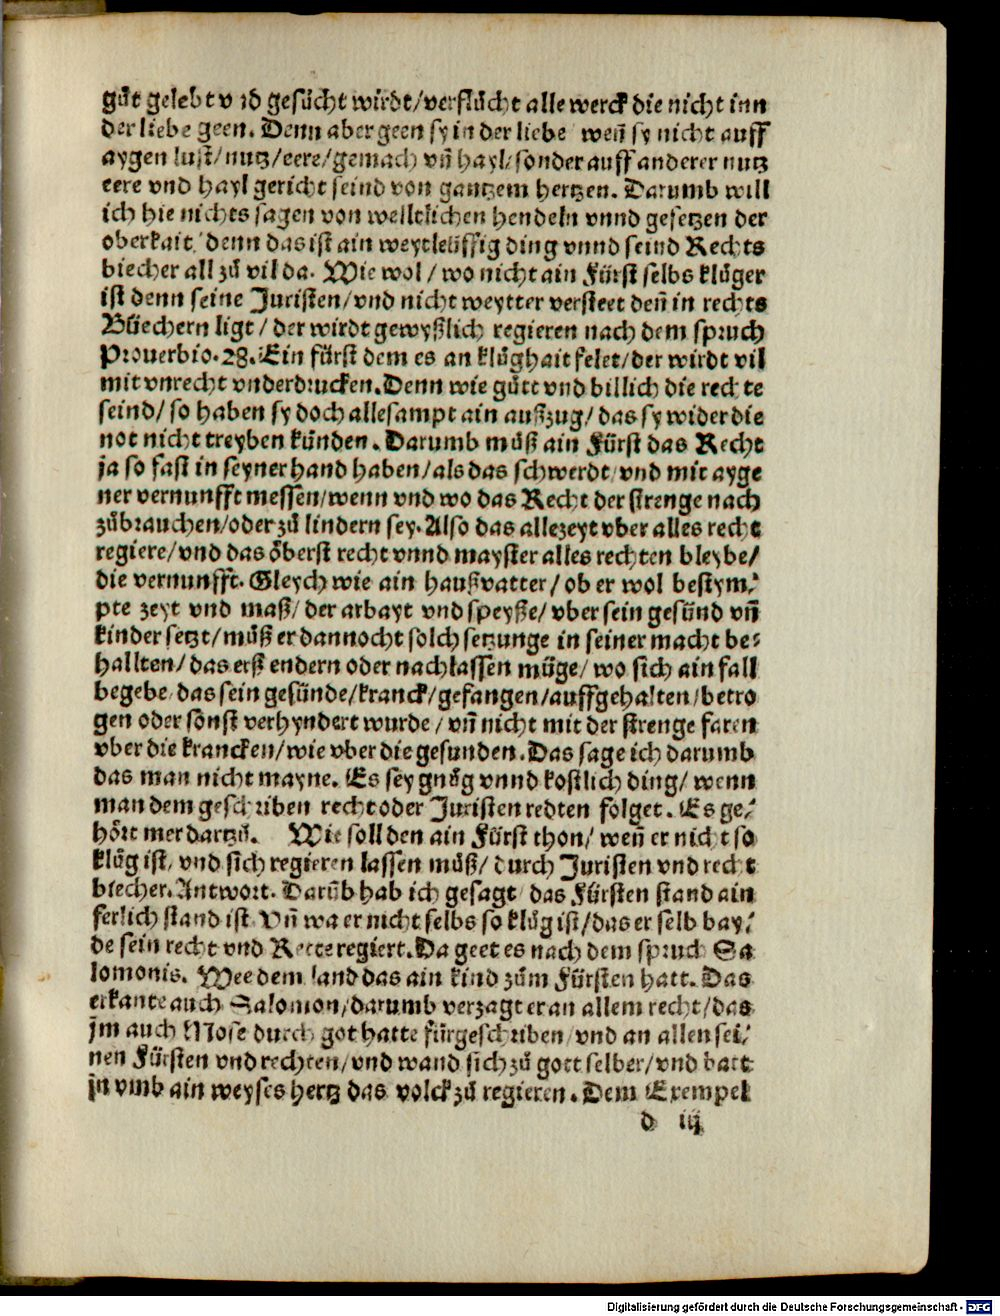 gůt gelebt vnd gesůcht wirdt/verflůcht alle werck die nicht inn
der liebe geen. Denn aber geen sy in der liebe weñ sy nicht auff
aygen lust/nutz/eere/gemach vñ hayl/sonder auff anderer nutz
eere vnd hayl gericht seind von gantzem hertzen. Darumb will
ich hie nichts sagen von welltlichen hendeln vnnd gesetzen der
oberkait/denn das ist ain weytleüffig ding vnnd seind Rechts
biecher all zů vil da. Wie wol/wo nicht ain Fürst selbs klůger
ist denn seine Juristen/vnd nicht weytter versteet deñ in rechts
Büechern ligt/der wirdt gewyßlich regieren nach dem spruch
Prouerbio.28.Ein fürst dem es an klůghait felet/der wirdt vil
mit vnrecht vnderdrucken.Denn wie gůtt vnd billich die rechte
seind/so haben sy doch allesampt ain außzug/das sy wider die
not nicht treyben künden.Darumb můß ain Fürst das Recht
ja so fast in seyner hand haben/als das schwerdt/vnd mit ayge
ner vernunfft messen/wenn vnd wo das Recht der strenge nach
zůbrauchen/oder zů lindern sey.Also das allezeyt vber alles recht
regiere/vnd das öberst recht vnnd mayster alles rechten bleybe/
die vernunfft. Gleych wie ain haußvatter/ob er wol bestym⸗
pte zeyt vnd maß/der arbayt vnd speyße/vber sein gesünd vñ
kinder setzt/můß er dannocht solch setzunge in seiner macht be⸗
hallten/das erß endern oder nachlassen müge/wo sich ain fall
begebe/das sein gesünde/kranck/gefangen/auffgehalten/betro
gen oder sonst verhyndert wurde/vñ nicht mit der strenge faren
vber die krancken/wie vber die gesunden.Das sage ich darumb
das man nicht mayne. Es sey gnůg vnnd kostlich ding/wenn
man dem geschriben recht oder Juristen redten folget. Es ge⸗
hört mer dartzů. Wie soll den ain Fürst thon/weñ er nicht so
klůg ist/vnd sich regieren lassen můß/durch Juristen vnd recht
biecher.Antwort.Darũb hab ich gesagt/das Fürsten stand ain
ferlich stand ist. Vñ wa er nicht selbs so klůg ist/das er selb bay⸗
de sein recht vnd Reete regiert.Da geet es nach dem spruch Sa
lomonis. Wee dem land das ain kind zům Fürsten hatt.Das
erkante auch Salomon/darumb verzagt er an allem recht/das
jm auch Mose durch got hatte fürgeschriben/vnd an allen sei⸗
nen Fürsten vnd rechten/vnd wand sich zů gott selber/vnd batt
jn vmb ain weyses hertz das volck zů regieren.Dem Exempel
d iij
Digitalisierung gefördert durch die Deutsche Forschungsgemeinschaft - DFG